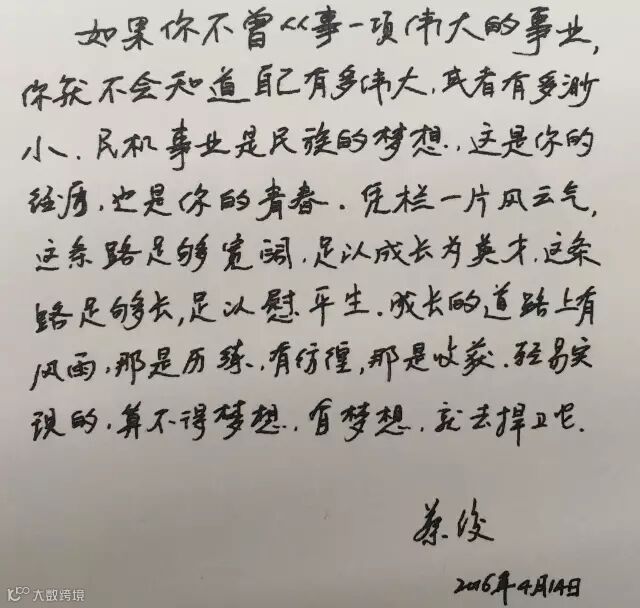 如果你不曾从事一项伟大的事业,
你就不会知道自己有多伟大,或者有多渺
小.民机事业是民族的梦想.,这是你的
经历,也是你的青春.凭栏一片风云气,
这条路足够宽阔,足以成长为英才,这条
路足够长,足以慰平生.成长的道路上有
风雨,那是历练,有彷徨,那是收获.轻易实
现的,算不得梦想.有梦想,就去捍卫吧.
蔡俊
2016年4月14日
大数跨境